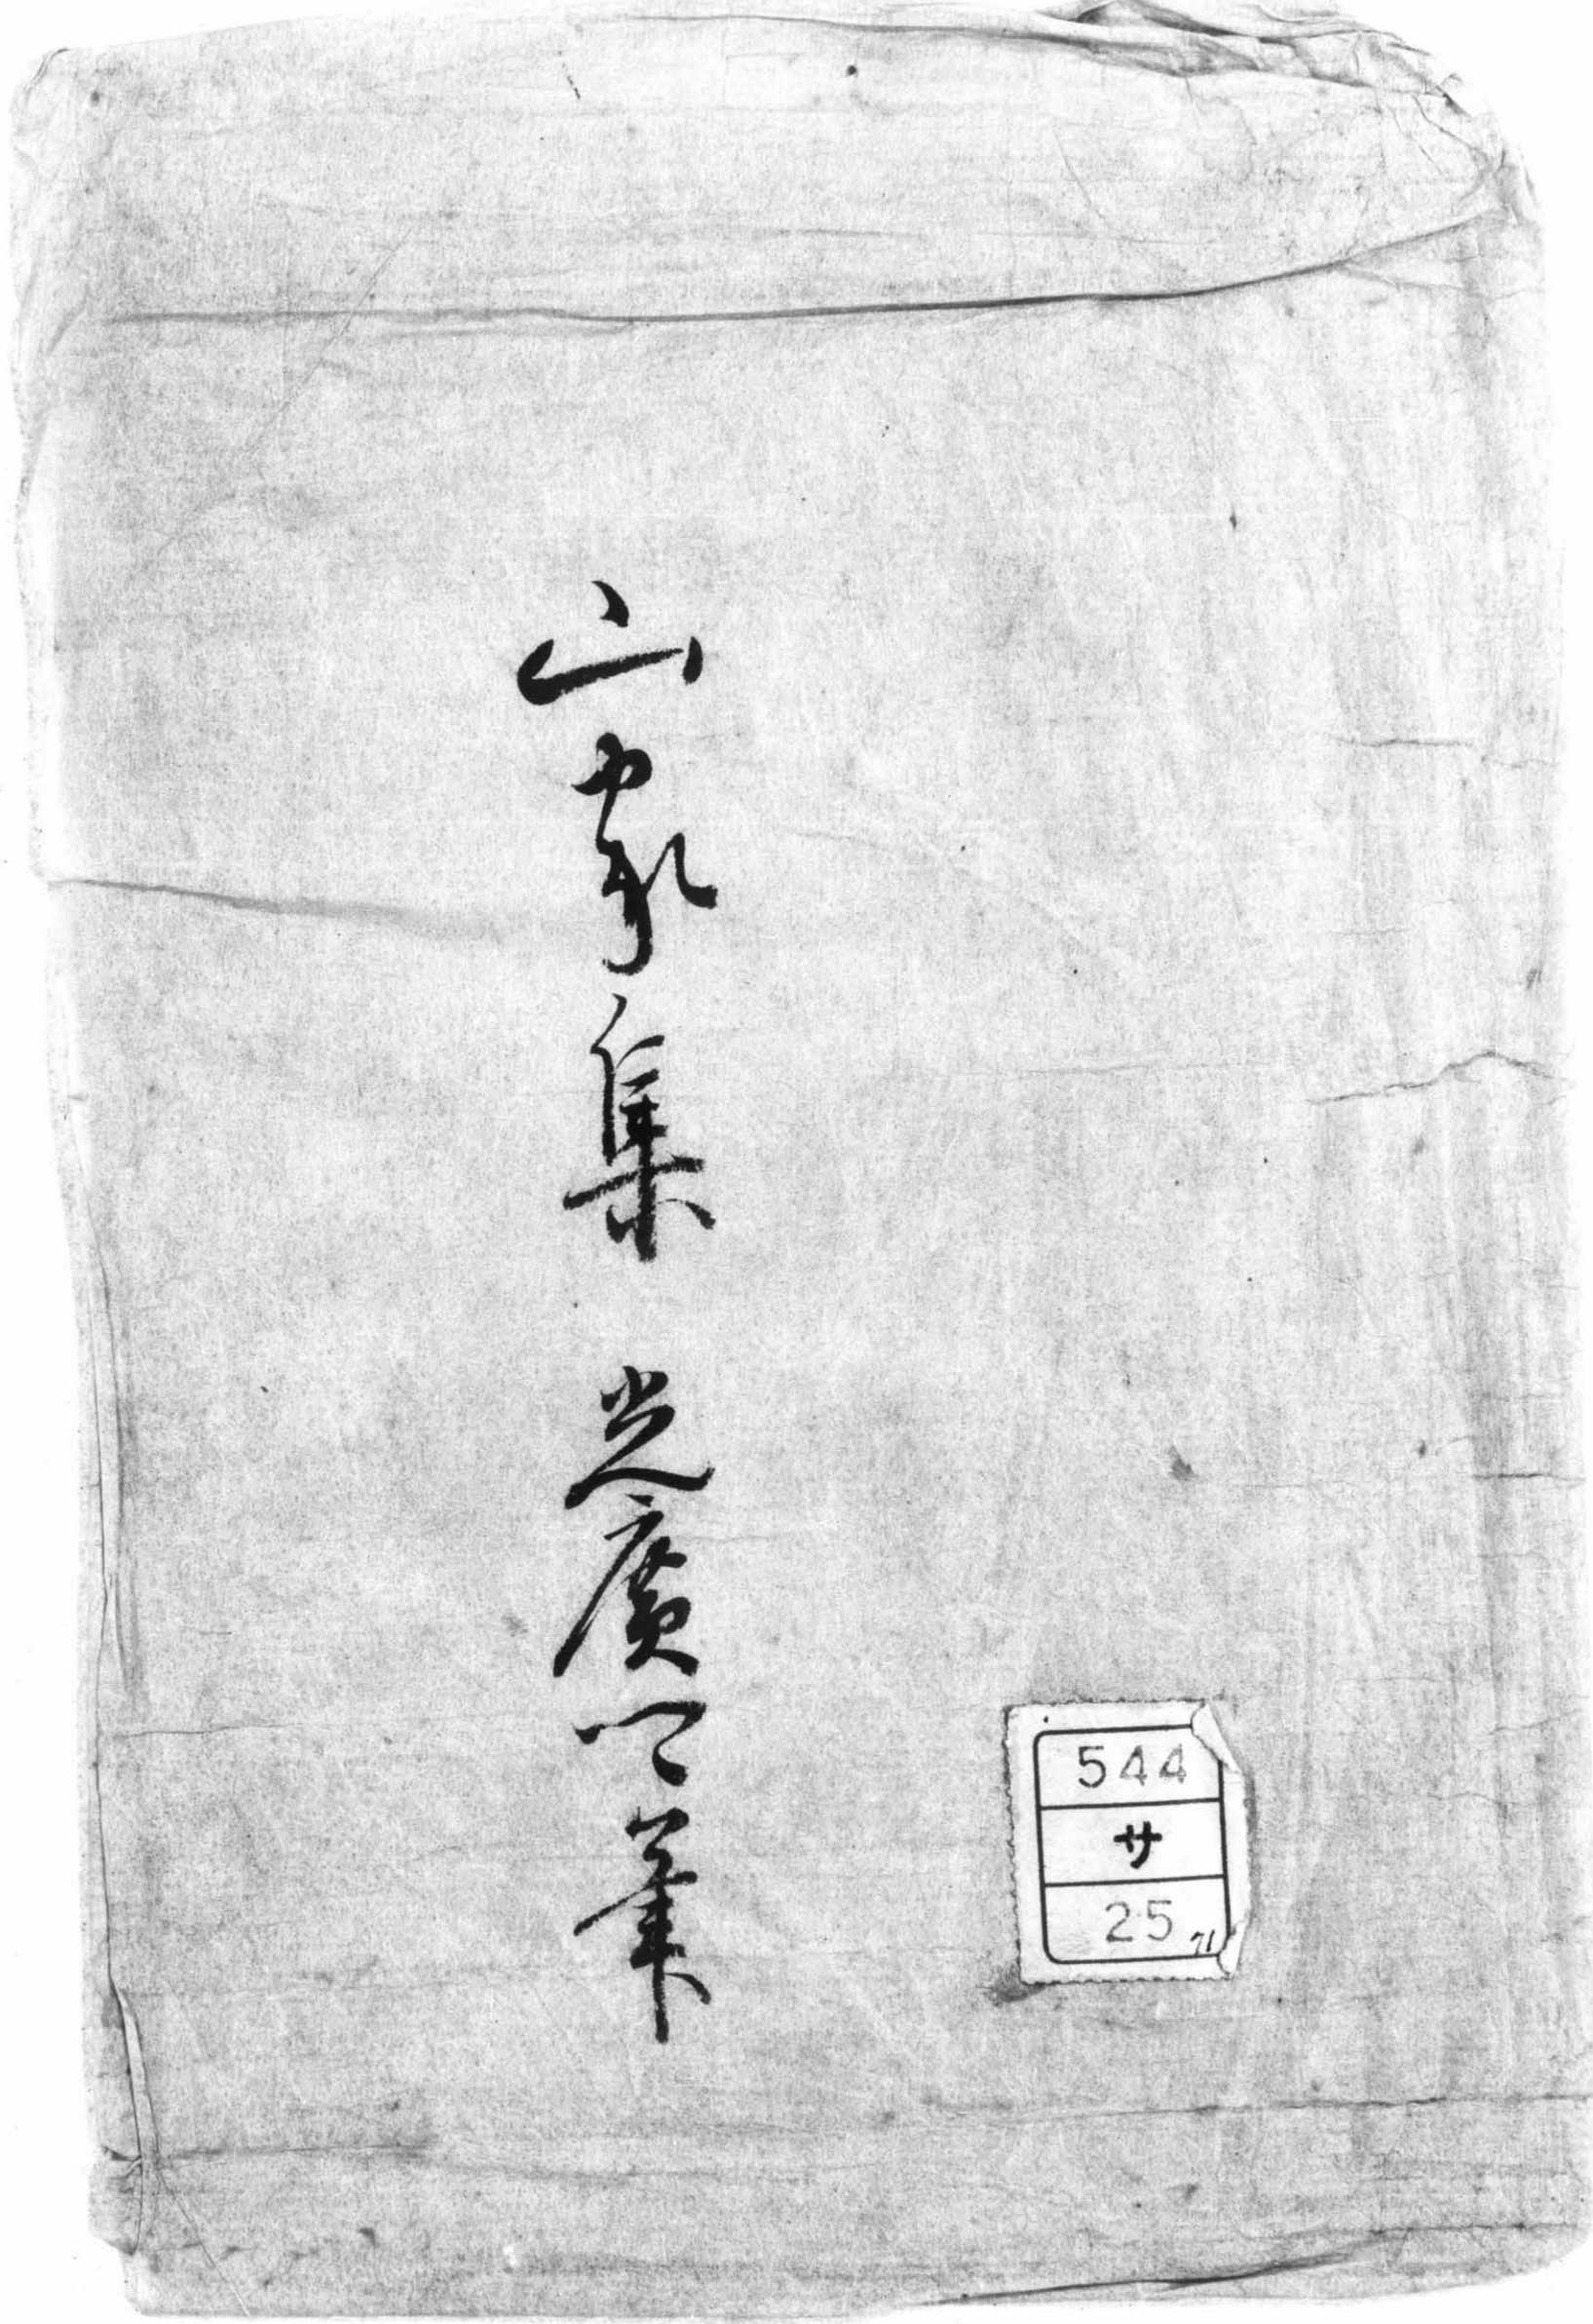 山家集 光廣公筆
544
サ
25
71